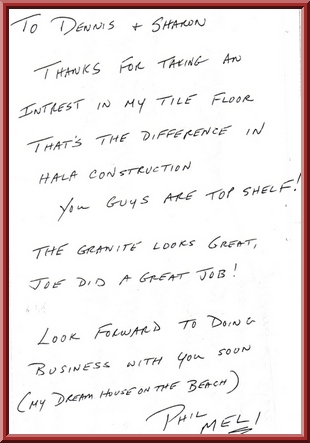 To Dennis + Sharon
Thanks for taking an
intrest in my tile floor
That's the difference in
Hala Construction
You guys are top shelf!
The granite looks great,
Joe did a great job!
Look forward to doing
business with you soun
(My dream house on the beach)
Phil
Mel!